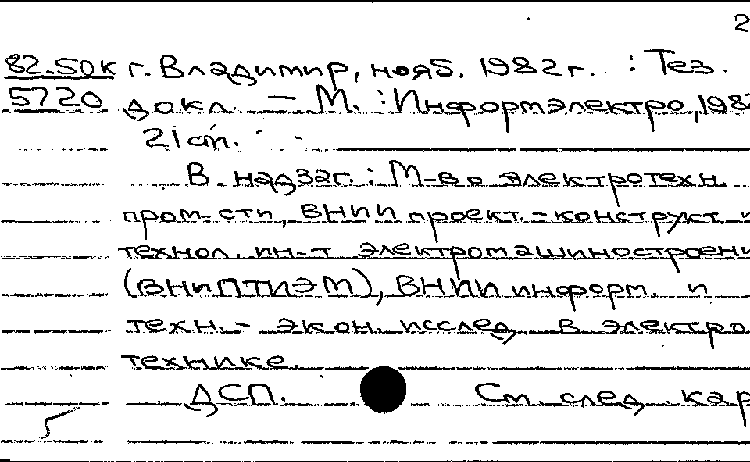 2
82.SOK г. Владимир, нояб. 1982 г. : Тез.
5720 докл. - М. : Информэлектро, 198
21 cm.
В надзаг.: М-во электротехн.
пром-сти, ВНИИ проект.-конструкт. и
технол. ин-т электромашиностроени
(ВНИПТИЭМ), ВНИИ информ. и
техн.-экон. исслед. в электро
технике.
ДСП. См. след. кар
5